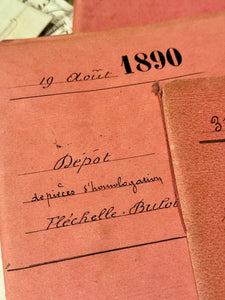 19 Août 1890
Dépôt
de pièces d'homologation
Fléchelle-Butor
3